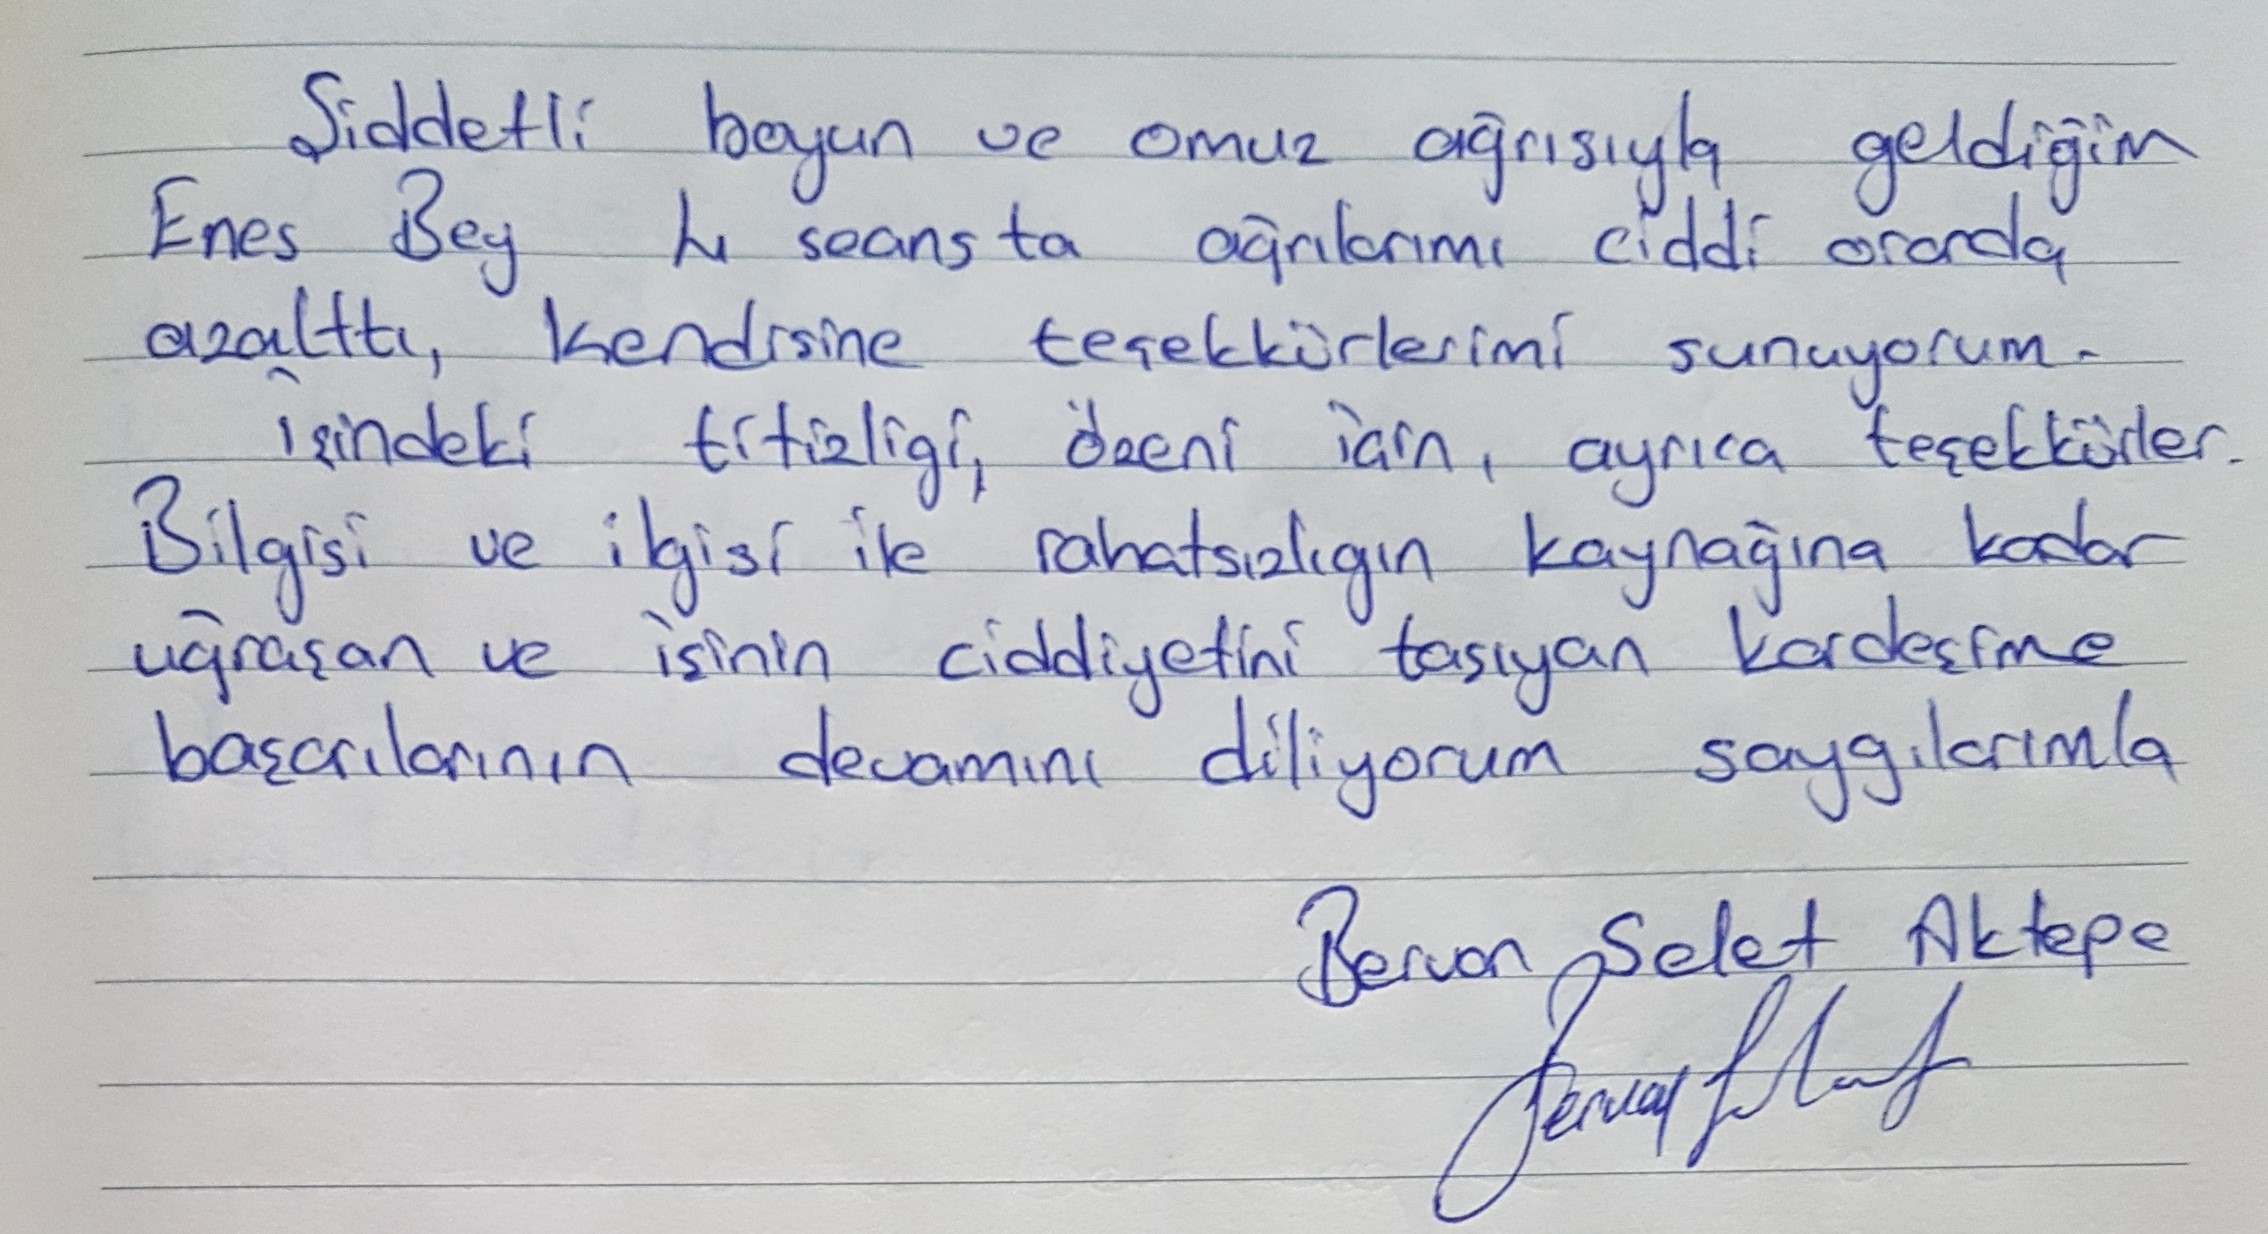 Şiddetli boyun ve omuz ağrısıyla geldiğim
Enes Bey 4 seansta ağrılarımı ciddi oranda
azalttı, kendisine teşekkürlerimi sunuyorum.
işindeki titizligi, özeni için, ayrıca teşekkürler.
Bilgisi ve ilgisi ile rahatsızlıgın kaynağına kadar
uğraşan ve işinin ciddiyetini taşıyan kardeşime
başarılarının devamını diliyorum saygılarımla
Bervan Selet Aktepe